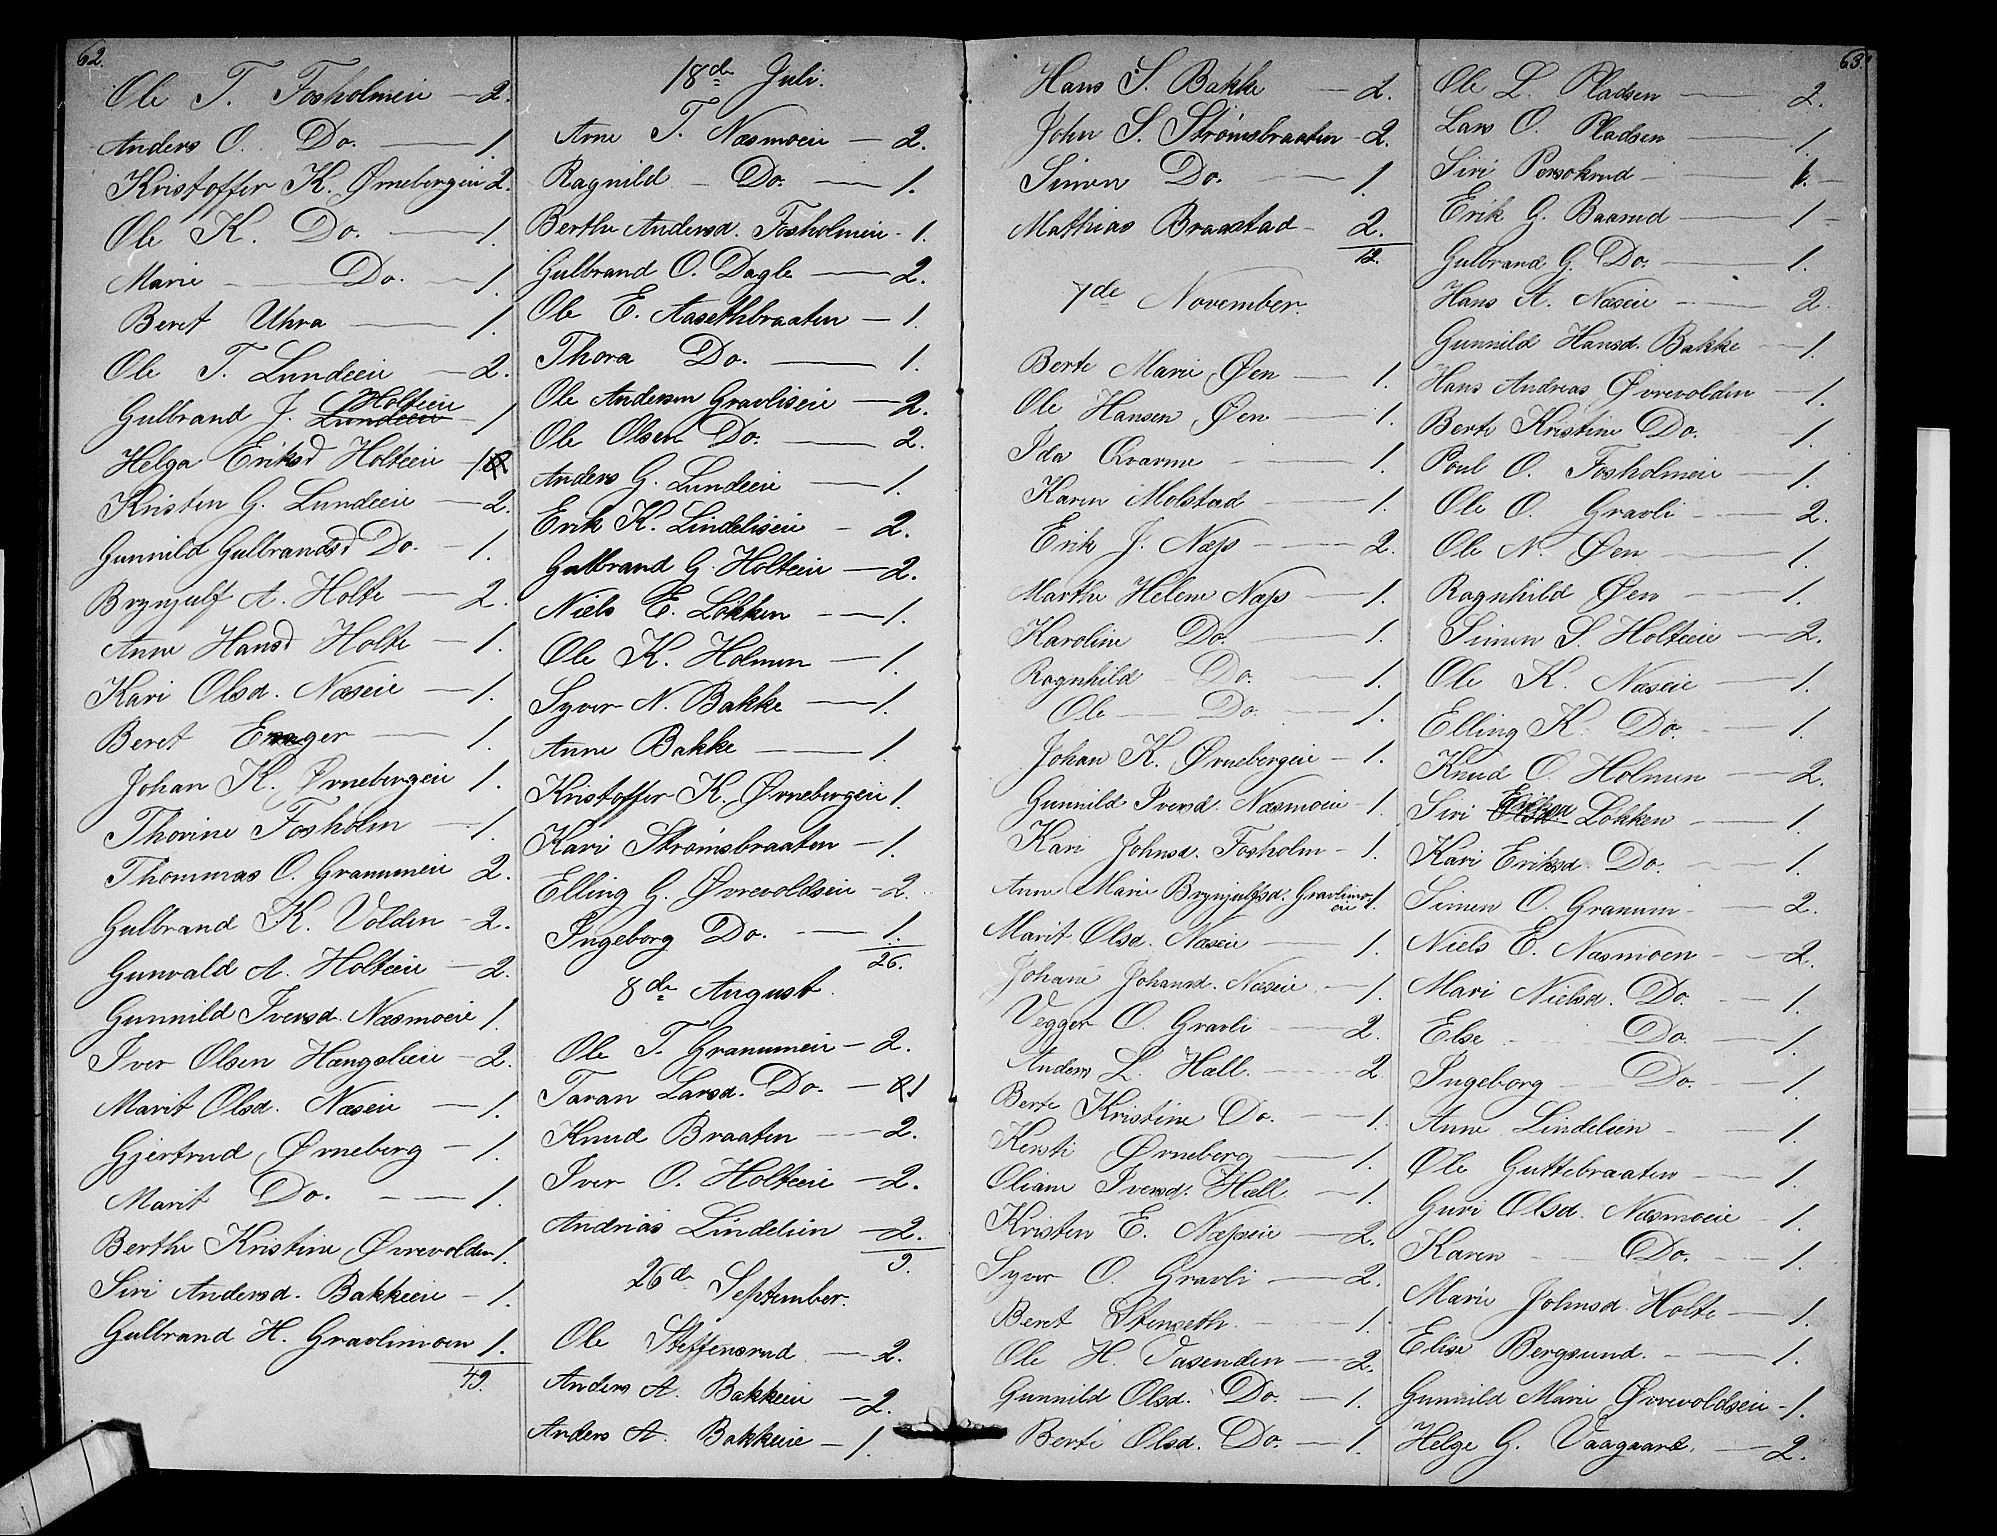 62.
Ole T. Fosholmeie — 2.
Anders O. Do. — 1.
Kristoffer K. Ørnebergeie 2.
Ole K. Do. — 1.
Marie — Do. — 1.
Beret Uhra — 1.
Ole T. Lundeeie — 2.
Gulbrand J. Lundeeie Holteeie 1
Helga Eriksd Holteeie — 1
Kristen G. Lundeeie — 2.
Gunnild Gulbrandsd Do. — 1.
Brynjulf A. Holte — 2.
Anne Hansd Holte — 1.
Kari Olsd. Næseie — 1.
Beret Enger — 1.
Johan K. Ørnebergeie 1.
Thorine Fosholm — 1.
Thommas O. Granumeie 2.
Gulbrand K. Volden — 2.
Gunvald A. Holteeie — 2.
Gunnild Iversd. Næsmoeie 1.
Iver Olsen Hængslieie — 2.
Marit Olsd. Næseie — 1.
Gjertrud Ørneberg — 1.
Marit Do. — 1.
Berthe Kristine Øvrevolden 1.
Siri Andersd. Bakkeeie — 1.
Gulbrand H. Gravlimoen 1.
49.
18de Juli.
Arne T. Næsmoeie — 2.
Ragnild — Do. — 1.
Berthe Andersd. Fosholmeie — 1.
Gulbrand O. Dagle — 2.
Ole E. Aasethbraaten — 1.
Thora Do. — 1.
Ole Andersen Gravliseie — 2.
Ole Olsen Do. — 2.
Anders G. Lundeeie — 1.
Erik K. Lindeliseie — 2.
Gulbrand G. Holteeie — 2.
Niels E. Løkken — 1.
Ole K. Holmen — 1.
Syver N. Bakke — 1.
Anne Bakke — 1.
Kristoffer K. Ørnebergeie 1.
Kari Strømsbraaten — 1.
Elling G. Øvrevoldseie — 2.
Ingeborg Do. — 1.
26.
8de August.
Ole T. Granumeie — 2.
Taran Larsd. Do. — 1
Knud Braaten — 2.
Iver O. Holteeie — 2.
Andrias Lindelien — 2.
9.
26de September.
Ole Steffensrud — 2.
Anders A. Bakkeeie — 2.
Anders A. Bakkeeie — 1.
Hans S. Bakke — 2.
John S. Strømsbraaten — 2.
Simen Do. — 1.
Mathias Braastad — 2.
12.
7de November.
Berte Marie Øen — 1.
Ole Hansen Øen — 1.
Ida Qvarme — 1.
Karen Molstad — 1.
Erik J. Næss — 2.
Marthe Helene Næss — 1.
Karoline Do. — 1.
Ragnhild Do. — 1.
Ole — Do. — 1.
Johan K. Ørnebergeie — 1.
Gunnild Iversd. Næsmoeie — 1.
Kari Johnsd. Fosholm — 1.
Anne Marie Brynjulfsd. Gravlimoeie 1.
Marit Olsd. Næseie — 1.
Johane Johansd. Næseie — 1.
Vegger O. Gravli — 2.
Anders L. Hall — 2
Berte Kristine Do. — 1.
Kersti Ørneberg — 1.
Oliane Iversd. Hæll — 1.
Kristen E. Næsseie — 2.
Syver O. Gravli — 2.
Beret Stenseth — 1.
Ole H. Vasenden — 2.
Gunnild Olsd. Do. — 1.
Berte Olsd. Do. — 1.
63.
Ole L. Pladsen — 2.
Lars O. Pladsen — 1.
Siri Persokrud — 1.
Erik G. Baarud — 1
Gulbrand G. Do. — 1.
Hans A. Næseie — 2.
Gunnild Hansd. Bakke — 1.
Hans Andreas Øvrevolden — 1.
Berte Kristine Do. — 1.
Poul O. Fosholmeie — 1.
Ole O. Gravli — 2.
Ole N. Øen — 1.
Ragnhild Øen — 1.
Simen S. Holteeie — 2.
Ole K. Næseie — 1.
Elling K. Do. — 1.
Knud O. Holmen — 2.
Siri Olsd. Eriksd Løkken — 1.
Kari Eriksd. Do. — 1.
Simen O. Granum — 2.
Niels E. Næsmoen — 2.
Mari Nielsd. Do. — 1.
Else Do. — 1.
Ingeborg Do. — 1.
Anne Lindelien — 1.
Ole Guttebraaten — 1.
Guri Olsd. Næsmoeie — 1.
Karen — Do. — 1.
Marie Johnsd. Holte — 1.
Elise Bergsund. — 1.
Gunnild Marie Øvrevoldseie — 1.
Helge G. Vaagaard. — 2.